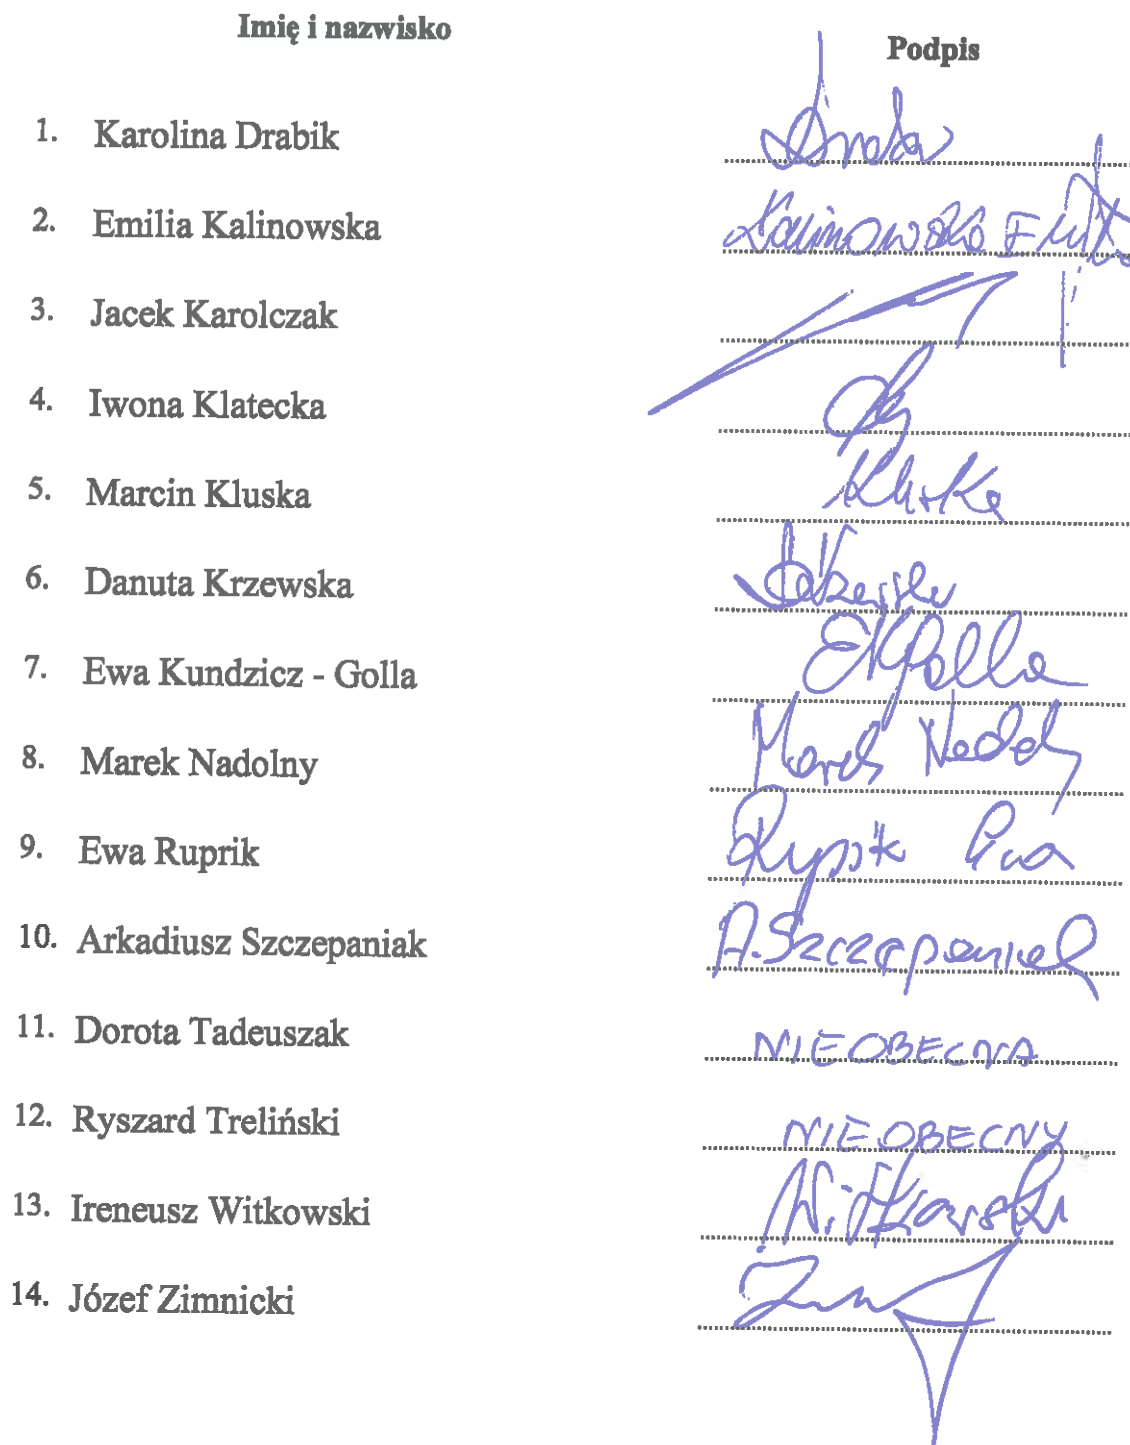 Imię i nazwisko
Podpis
1. Karolina Drabik
2. Emilia Kalinowska Kalinowska Emilia
3. Jacek Karolczak
4. Iwona Klatecka
5. Marcin Kluska Kluska
6. Danuta Krzewska
7. Ewa Kundzicz - Golla EKGolla
8. Marek Nadolny Marek
9. Ewa Ruprik Ewa
10. Arkadiusz Szczepaniak A. Szczepaniak
11. Dorota Tadeuszak NIEOBECNA
12. Ryszard Treliński NIEOBECNY
13. Ireneusz Witkowski Witkowski
14. Józef Zimnicki